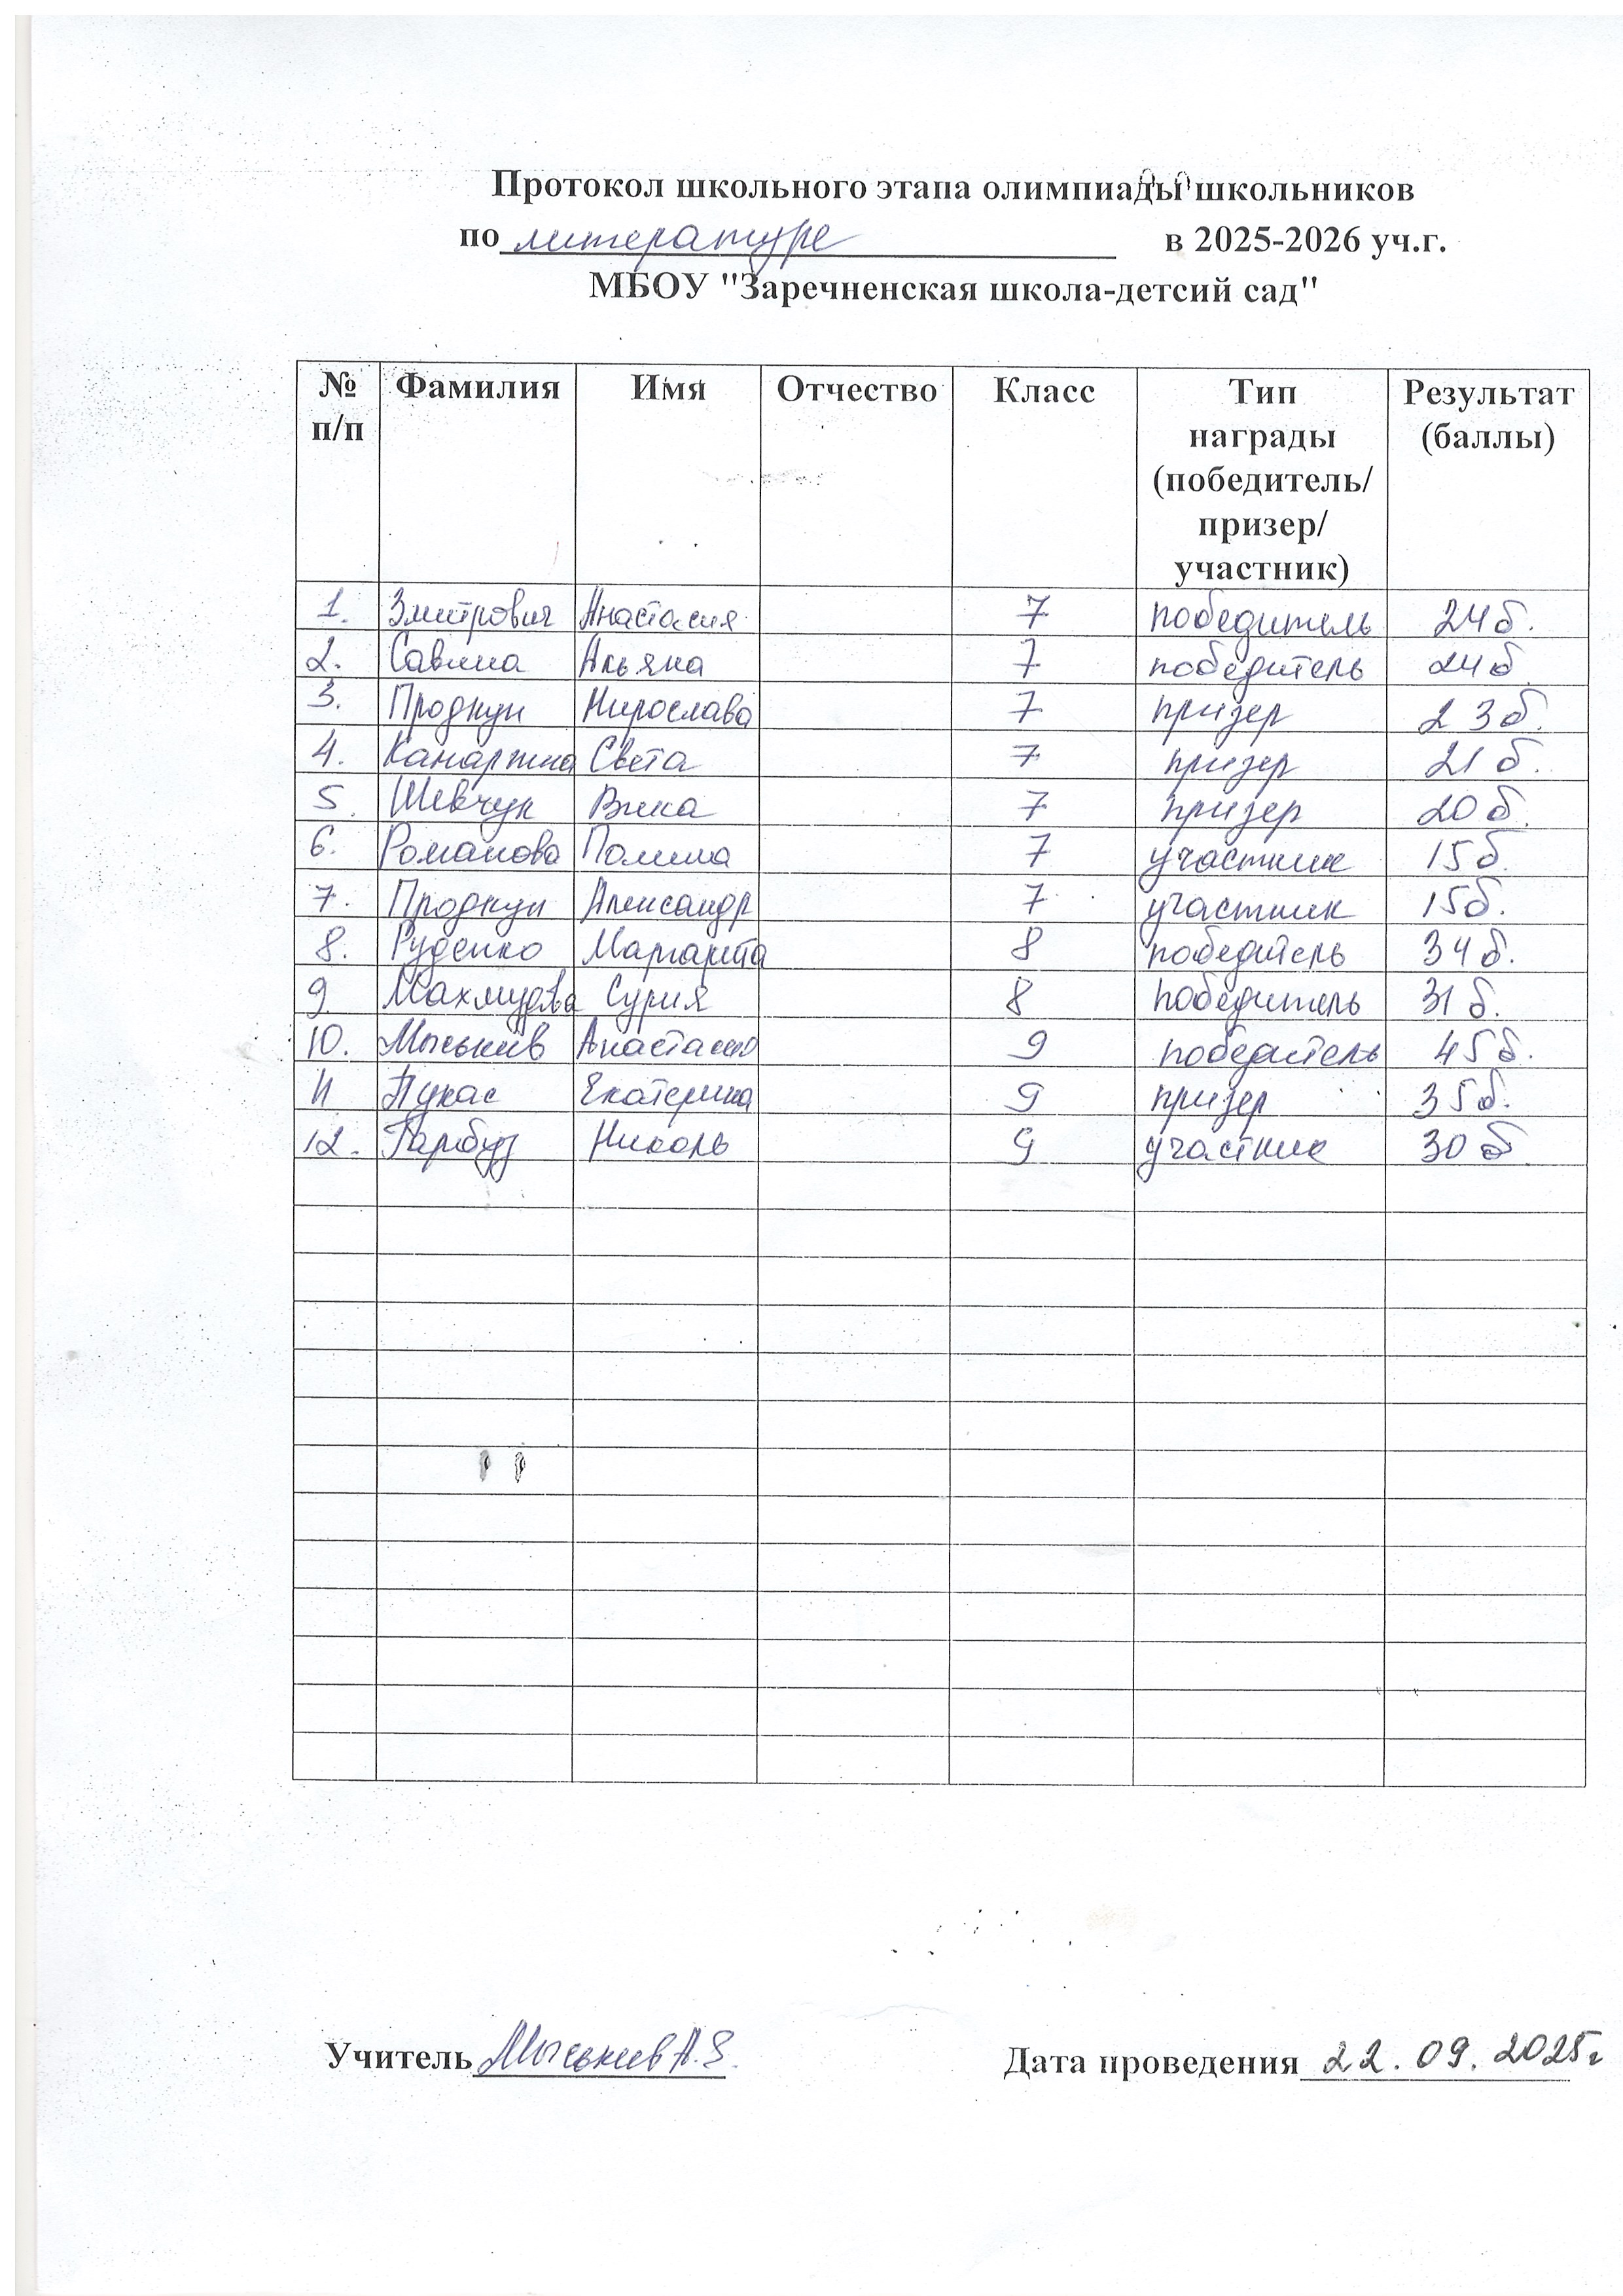 Протокол школьного этапа олимпиады школьников
по литературе в 2025-2026 уч.г.
МБОУ "Заречненская школа-детсий сад"
№ п/п Фамилия Имя Отчество Класс Тип награды (победитель/ призер/ участник) Результат (баллы)
1. Змитрович Анастасия 7 победитель 24б.
2. Савина Альяна 7 победитель 24б
3. Продкун Мирослава 7 призер 23б.
4. Света 7 призер 21б.
5. Шевчук Вика 7 призер 20б.
6. Романова Полина 7 участник 15б.
7. Продкун Александр 7 участник 15б.
8. Руденко Маргарита 8 победитель 34б.
9. Махмудова Сурия 8 победитель 31б.
10. Мыськив 9 победитель 45б.
11 Екатерина 9 призер 35б.
12. Гарбуз Николь 9 участник 30б.
Учитель Мыськив А.З. Дата проведения 22.09.2025г